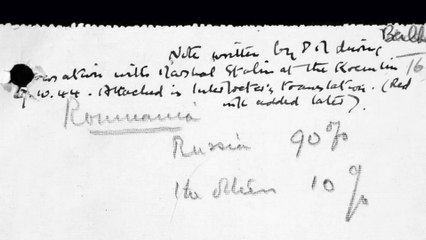 Note written by P M during
conversation with Marshal Stalin at the Kremlin 16
9. 10. 44. Attached is Interlocutor's translation. (Red
ink added later).
Roumania
Russia 90%
the others 10%